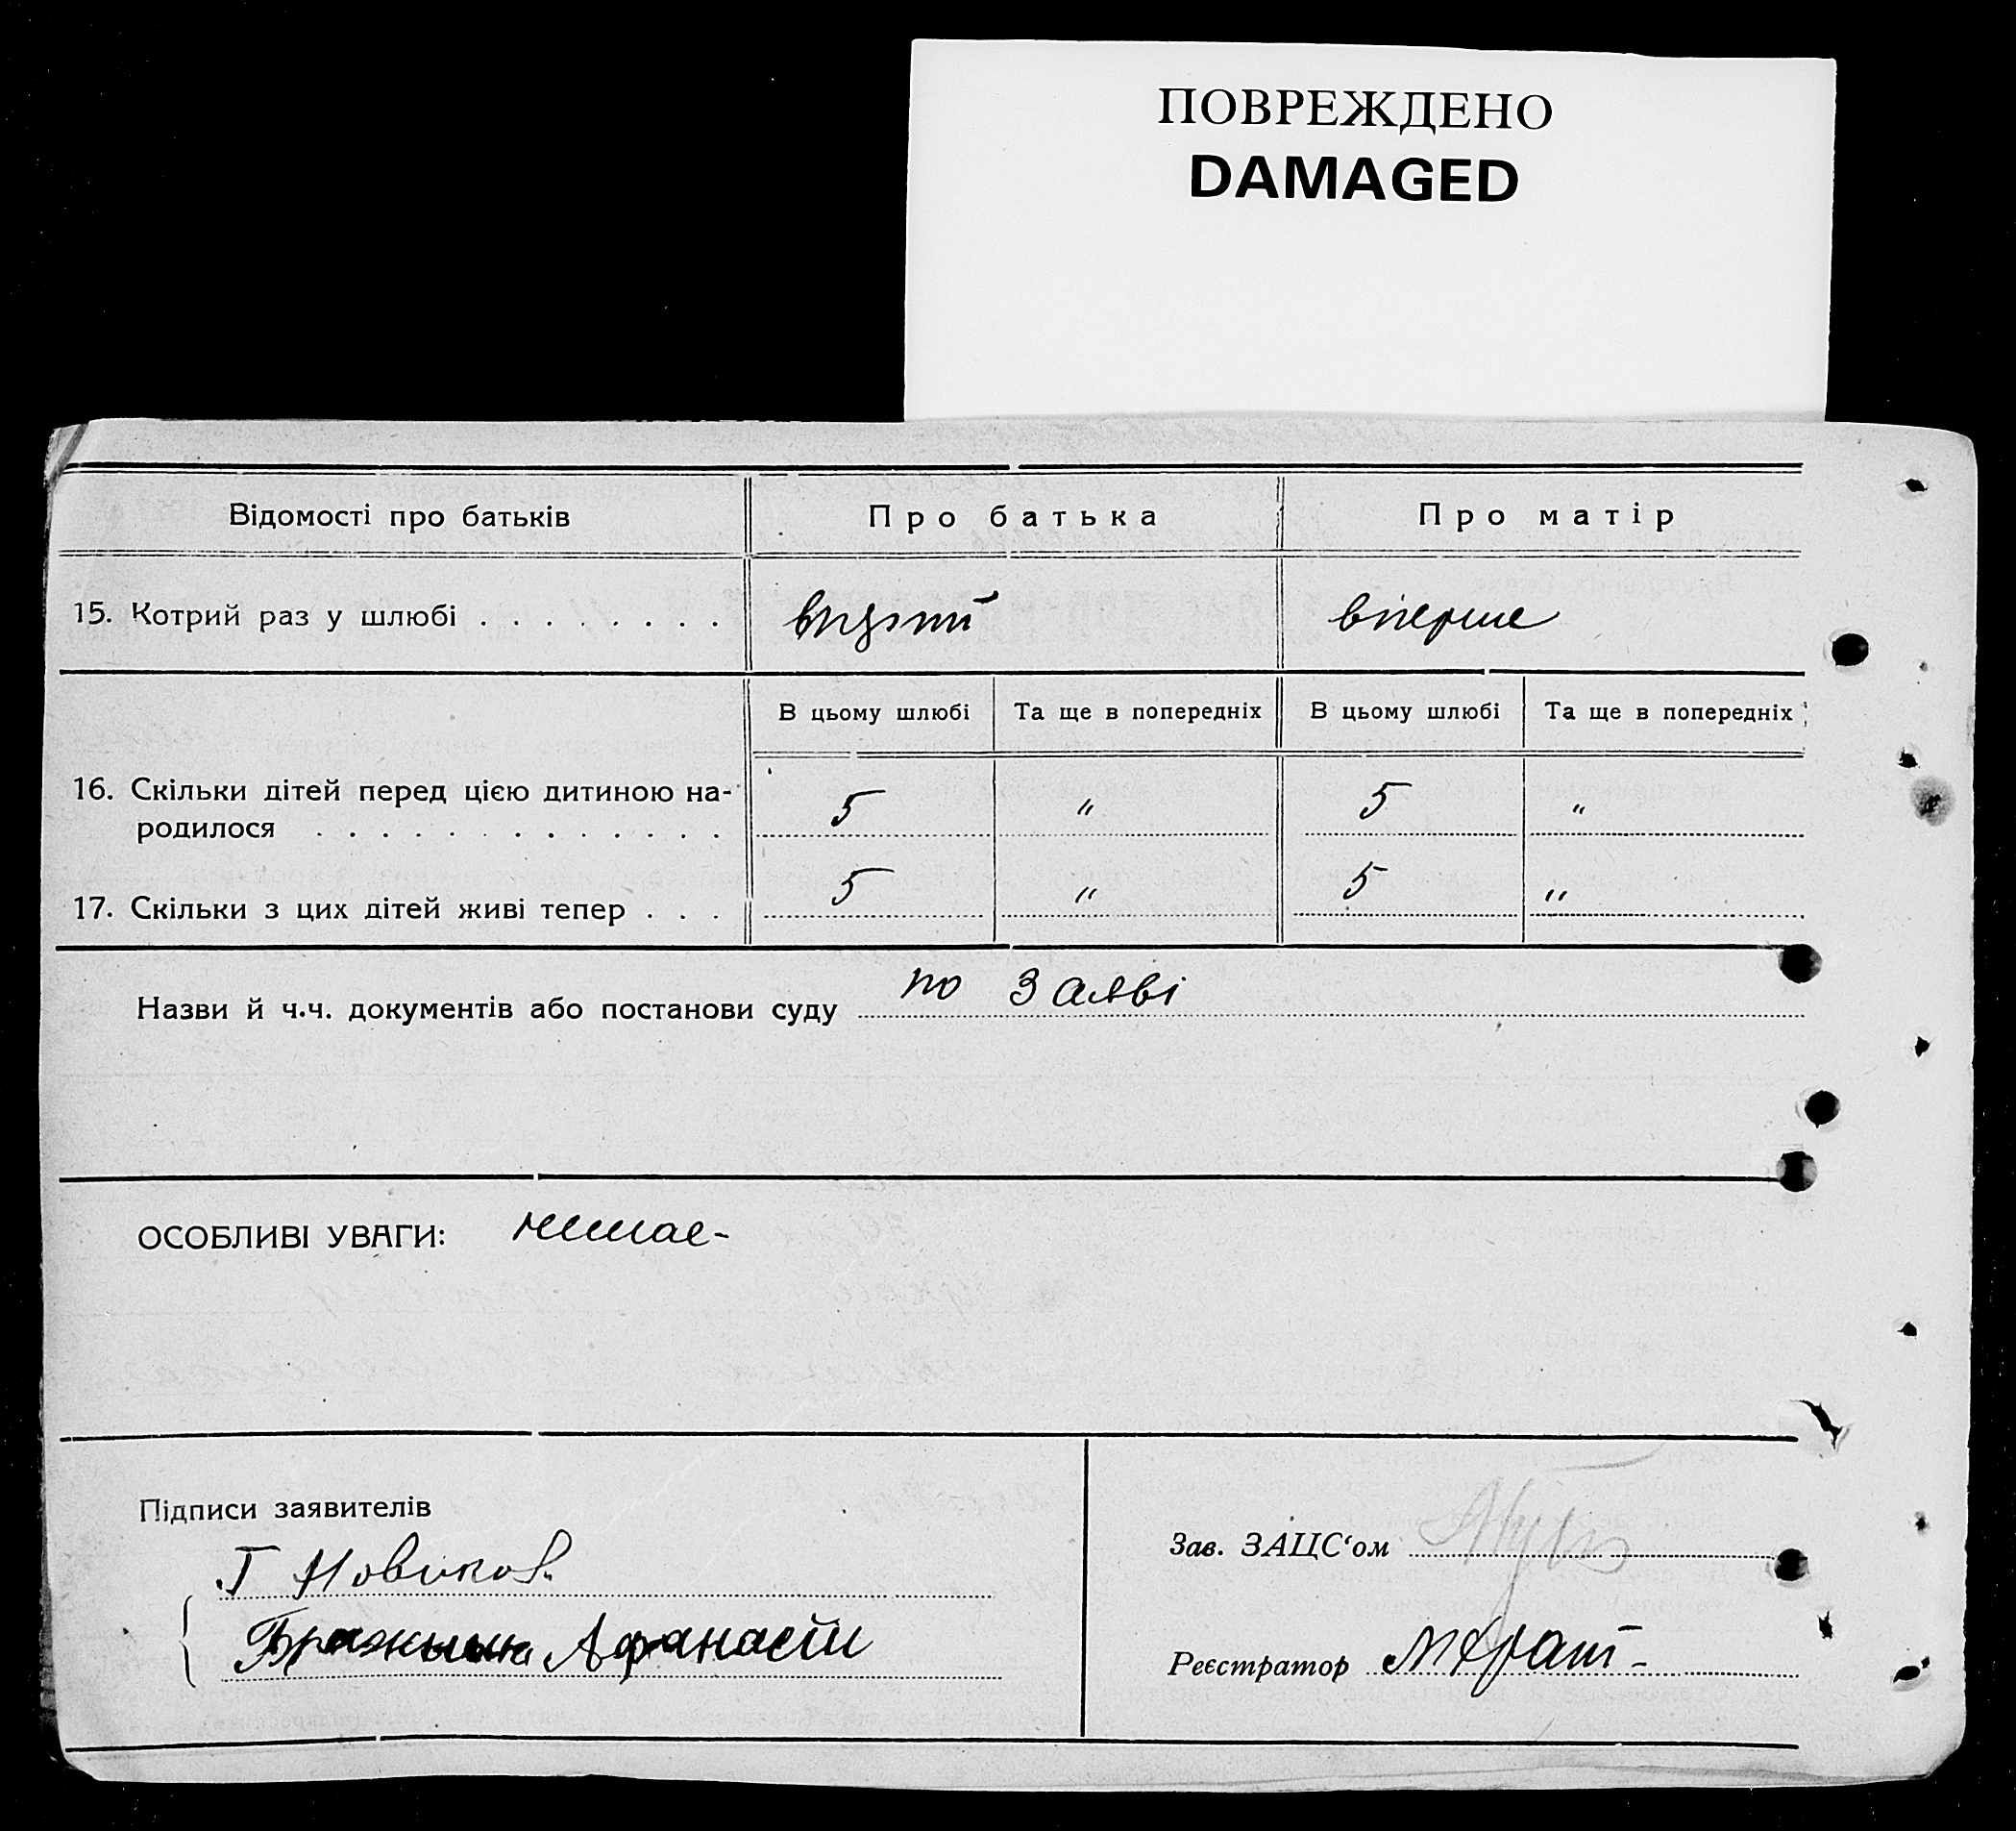 ПОВРЕЖДЕНО
DAMAGED
Відомості про батьків
Про батька
Про матір
15. Котрий раз у шлюбі . . . . . . . .
вперше
В цьому шлюбі
Та ще в попередніх
В цьому шлюбі
Та ще в попередніх
16. Скільки дітей перед цією дитиною на-
родилося . . . . . . . . . . . . .
5 " 5 "
17. Скільки з цих дітей живі тепер . . .
5 " 5 "
Назви й ч.ч. документів або постанови суду по Заяві
ОСОБЛИВІ УВАГИ: немає-
Підписи заявителів
Г Новіков
Афанасти
Зав. ЗАЦС'ом
Реєстратор